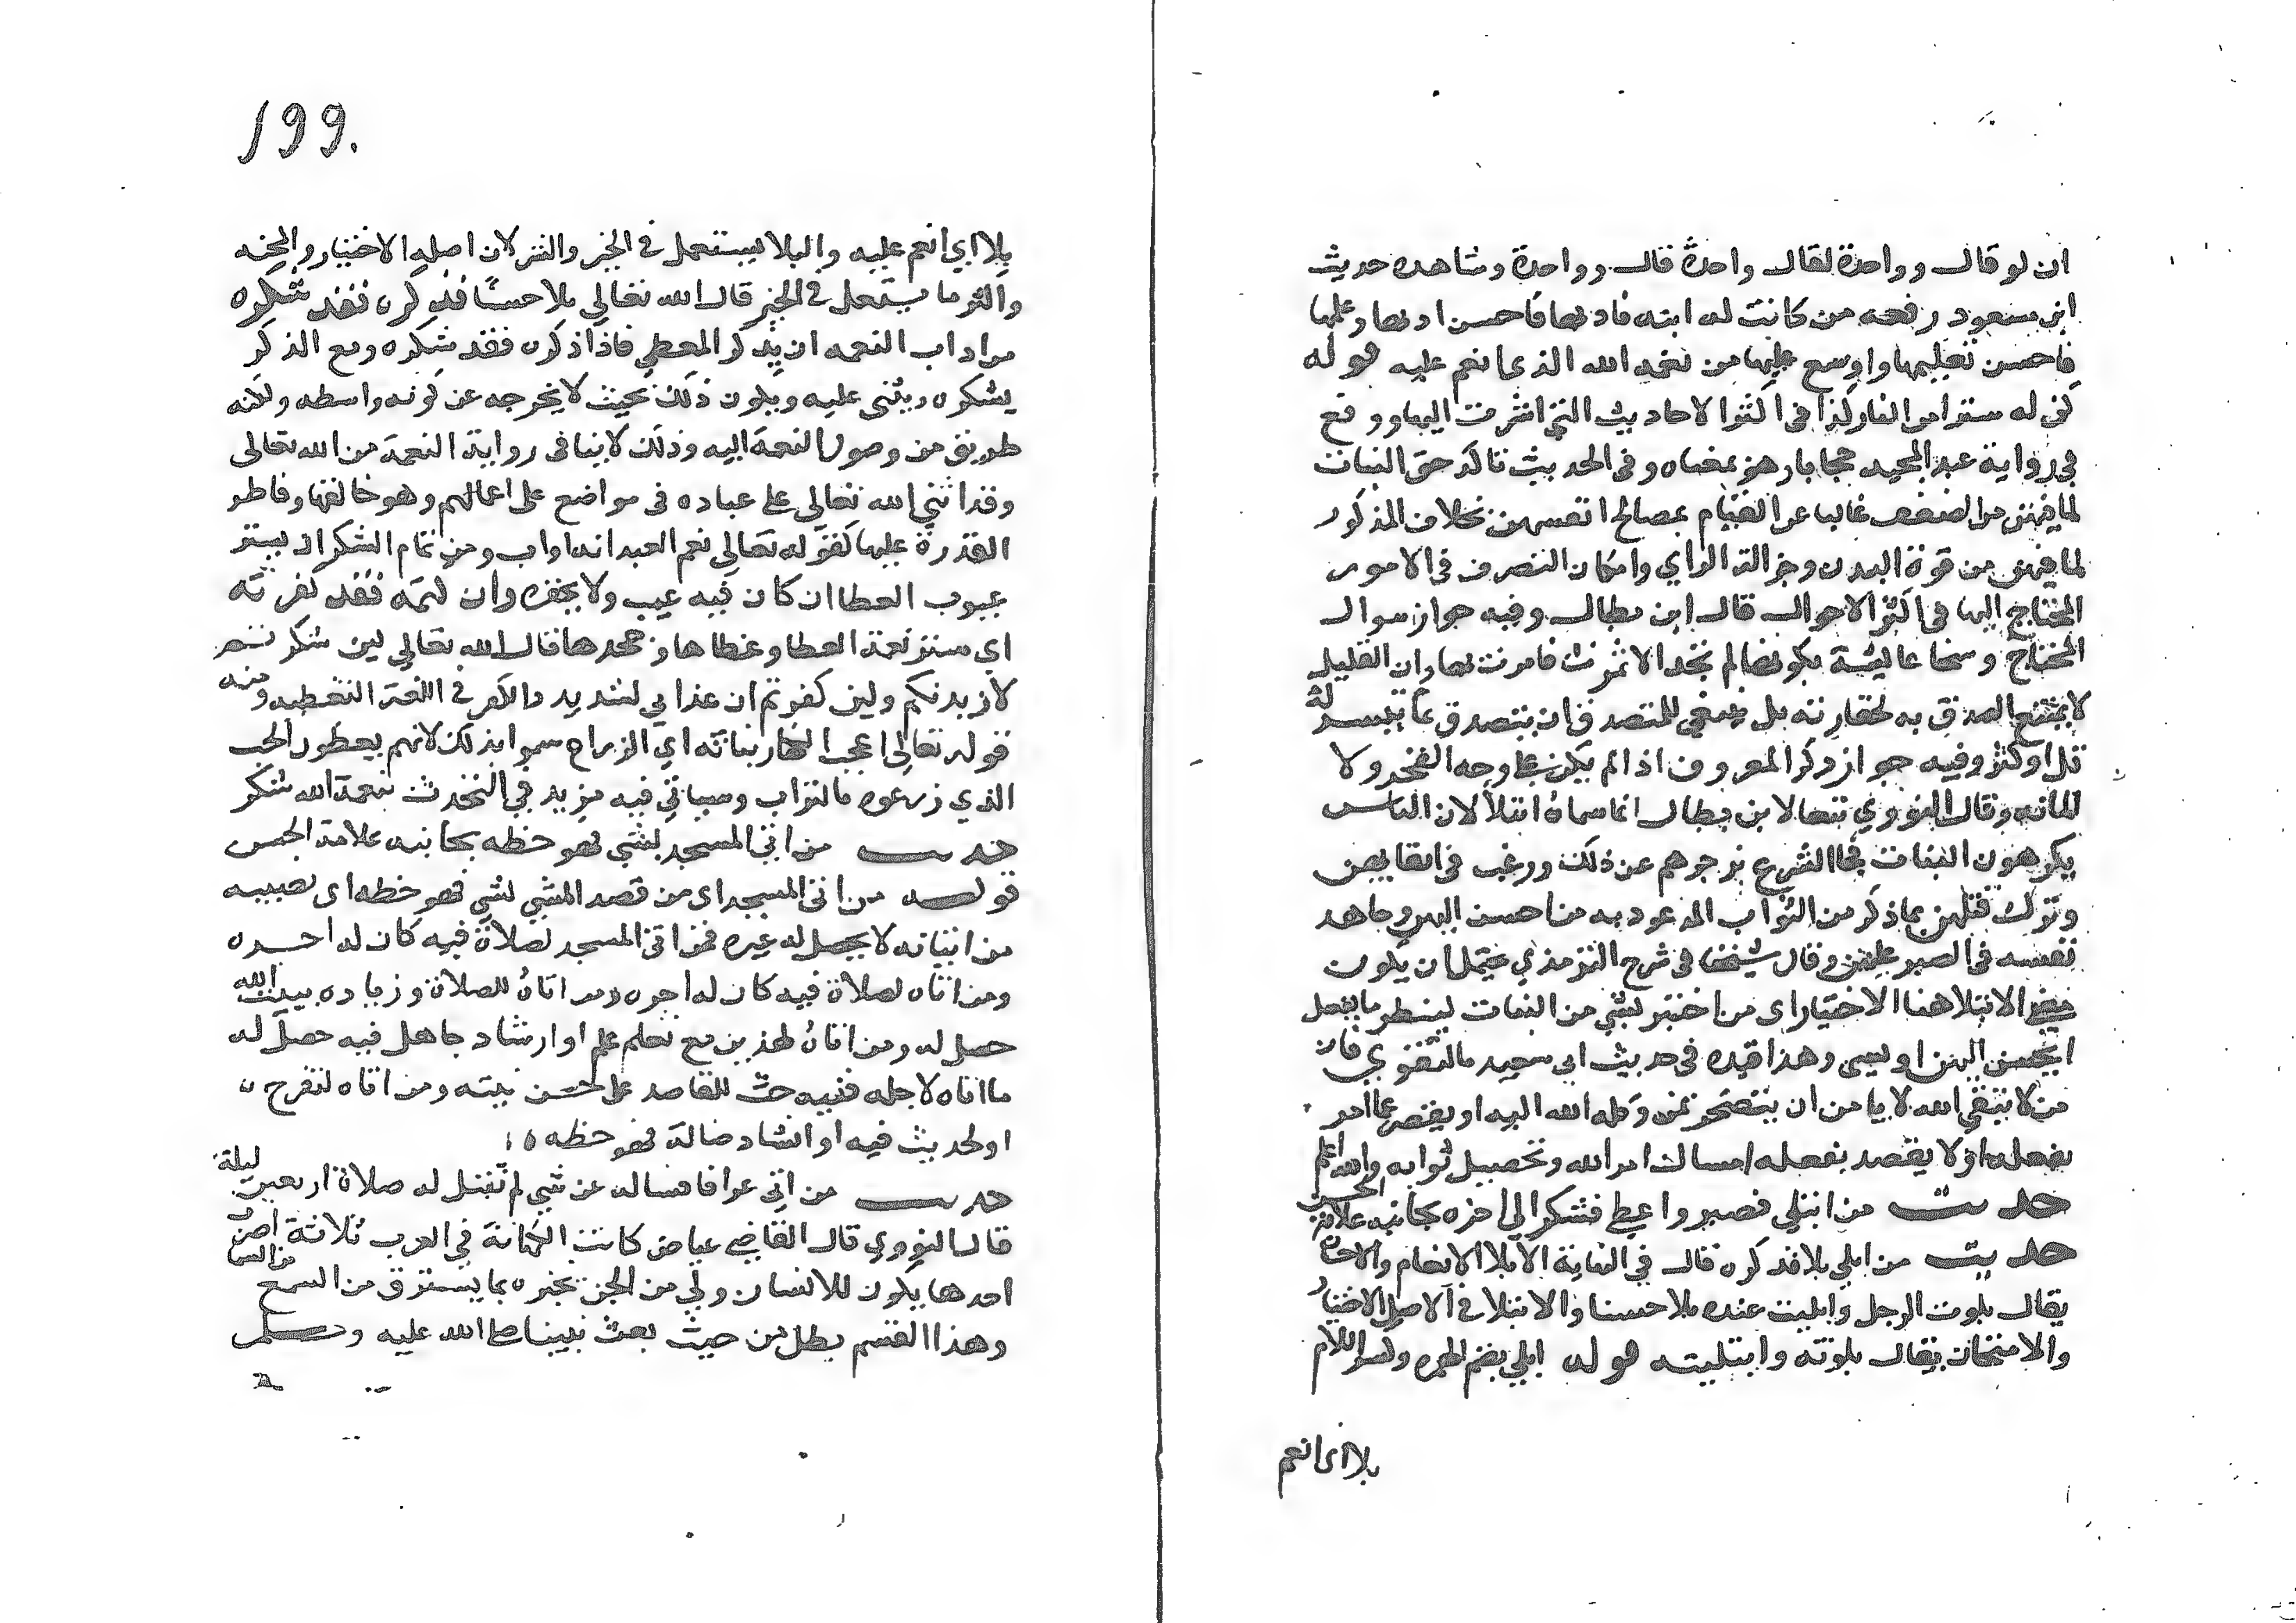 ان لو قال وواحدة لقال واحدة قال وواحدة وشاهده حديث
ابن مسعود رفعه من كانت له ابنة فادبها فاحسن ادبها وعلمها
فاحسن تعليمها واوسع عليها من نعمه الله الذي انعم عليه قوله
كن له سترا من النار كذا في اكثر الاحاديث التي اشرت اليها ووقع
في رواية عبد المجيد حجابا وهو بمعناه وفي الحديث تاكد حق البنات
لما فيهن من الضعف غالبا عن القيام بمصالح انفسهن بخلاف الذكور
لما فيهم من قوة البدن وجزالة الراي وامكان التصرف في الامور
المحتاج اليها في اكثر الاحوال قال ابن بطال وفيه جواز سوال
المحتاج وسخا عائشة بكونها لم تجد الا تمرة فاثرت بها وان القليل
لا يمتنع الصدق به لحقارته بل ينبغي للمتصدق ان يتصدق بما تيسر له
قل او كثر وفيه جواز ذكر المعروف اذا لم يكن على وجه الفخر ولا
المانه وقال النووي تبعا لابن بطال انما سماه ابتلا لان الناس
يكرهون البنات فجا الشرع بزجرهم عن ذلك ورغب في ابقايهن
وترك قتلهن بما ذكر من الثواب الموعود به من احسن اليهن وجاهد
نفسه في الصبر عليهن وقال شيخنا في شرح الترمذي يحتمل ان يكون
معنى الابتلا هنا الاختبار اي من اختبر بشي من البنات لينظر ما يفعل
ايحسن اليهن او يسى وهذا قيده في حديث ابي سعيد بالتقوي فان
من لا يتقي الله لا يامن ان يتضجر بمن وكله الله اليه او يقصر عما امر
بفعله او لا يقصد بفعله امساك امر الله وتحصيل ثوابه والله اعلم
حديث من ابتلي فصبر واعطي فشكر الى اخره بجانبه علامة الحسن
حديث من ابلي بلا فذكره قال في النهاية الابلا الانعام والاحسان
يقال بلوت الرجل وابليت عنده بلا حسنا والابتلا في الاصل الاختبار
والامتحان يقال بلوته وابتليته قوله ابلي بضم الهمزه وكسر اللام
بلا اي انعم
199
بلا اي انعم عليه والبلا يستعمل في الخير والشر لان اصله الاختبار والمحنه
واكثر ما يستعمل في الخير قال الله تعالي بلا حسنا فذكره فقد شكره
من اداب النعمه ان يذكر المعطي فاذا ذكره فقد شكره ومع الذكر
يشكره ويثنى عليه ويكون ذلك بحيث لا يخرجه عن كونه واسطه ولكنه
طريق من وصول النعمة اليه وذلك لا ينافي رواية النعمة من الله تعالى
وقد اثنى الله تعالى على عباده في مواضع على اعمالهم وهو خالقها وفاطر
القدرة عليها كقوله تعالى نعم العبد انه اواب ومن تمام الشكر ان يستر
عيوب العطا ان كان فيه عيب ولا يحقره وان كتمه فقد كفر ته
اي ستر نعمة العطا وغطاها وجحدها قال الله تعالي لين شكرتم
لازيدنكم ولين كفرتم ان عذابي لشديد والكفر في اللغة التغطيه ومنه
قوله تعالى اعجب الكفار نباته اي الزراع سموا بذلك لانهم يغطون الحب
الذي زرعوه بالتراب وسياتي فيه مزيد في التحدث بنعمة الله شكر
حديث من اتى المسجد لشي فهو حظه بجانبه علامة الحسن
قوله من اتى المسجد اي من قصد المشي لشي فهو حظه اي نصيبه
من اتيانه لا يحصل له غيره فمن اتى المسجد لصلاة فيه كان له اجره
ومن اتاه لصلاة فيه كان له اجره ومن اتاه للصلاة وزياده بيت الله
حصل له ومن اتاه لهذين مع تعلم علم او ارشاد جاهل فيه حصل له
ما اتاه لاجله ففيه حث للقاصد على حسن نيته ومن اتاه لتفرج
او لحديث فيه او انشاد ضالة فهو حظه
حديث من اتى عرافا فساله عن شي لم تقبل له صلاة اربعين ليلة
قال النووي قال القاضي عياض كانت الكهانة في العرب ثلاثة اضرب
احدها يكون للانسان ولي من الجن يخبره بما يسترق من السمع من السما
وهذا القسم بطل من حيث بعث نبينا صلى الله عليه وسلم